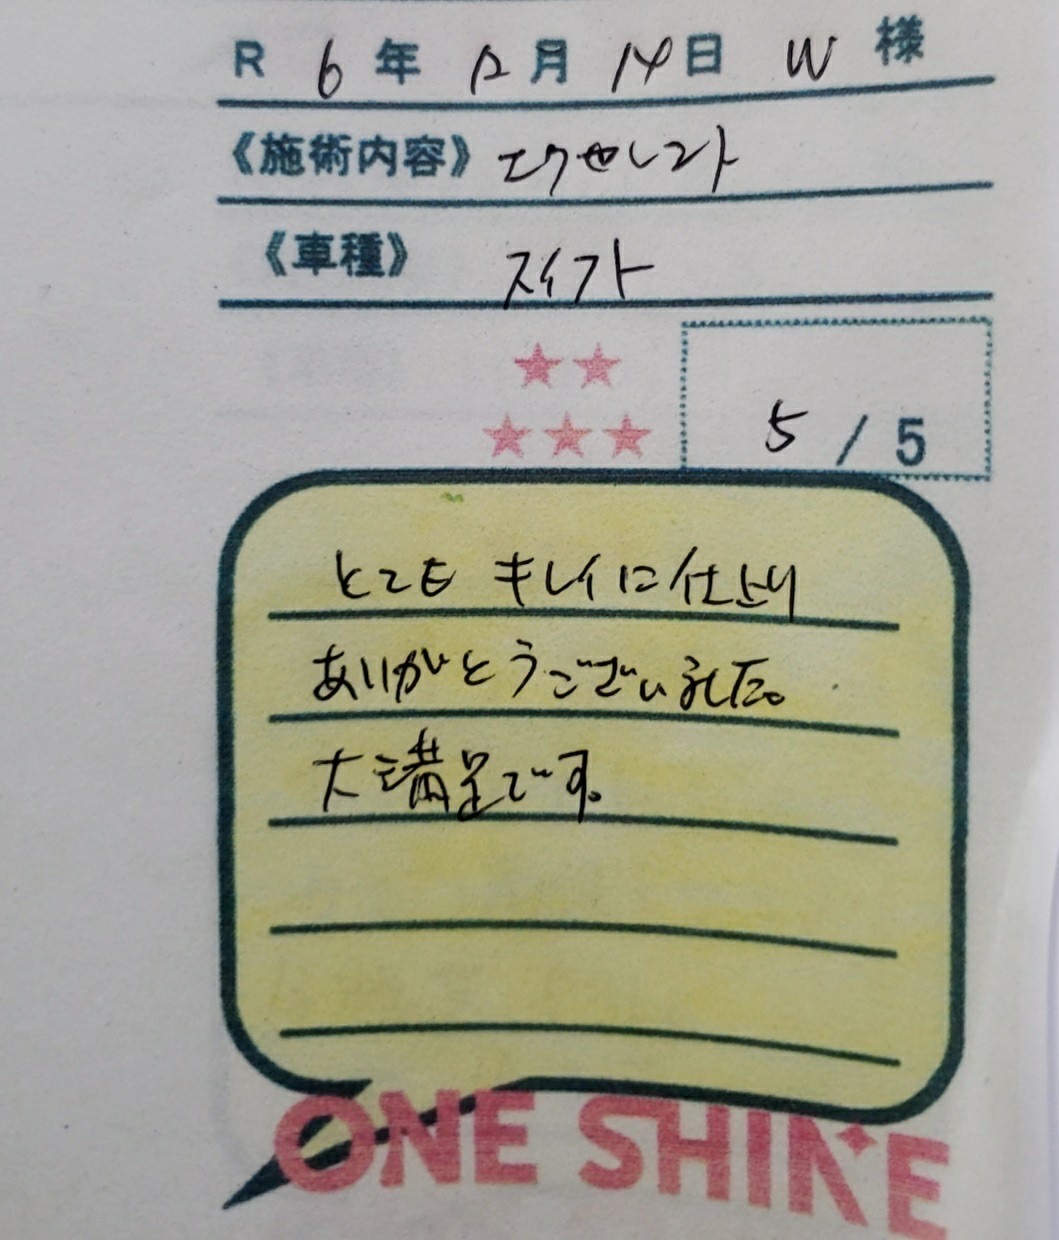 R 6年 12月 14日 W 様
《施術内容》エクセレント
《車種》スイフト
5 / 5
とても キレイに仕上り
ありがとうございました。
大満足です。
ONE SHINE